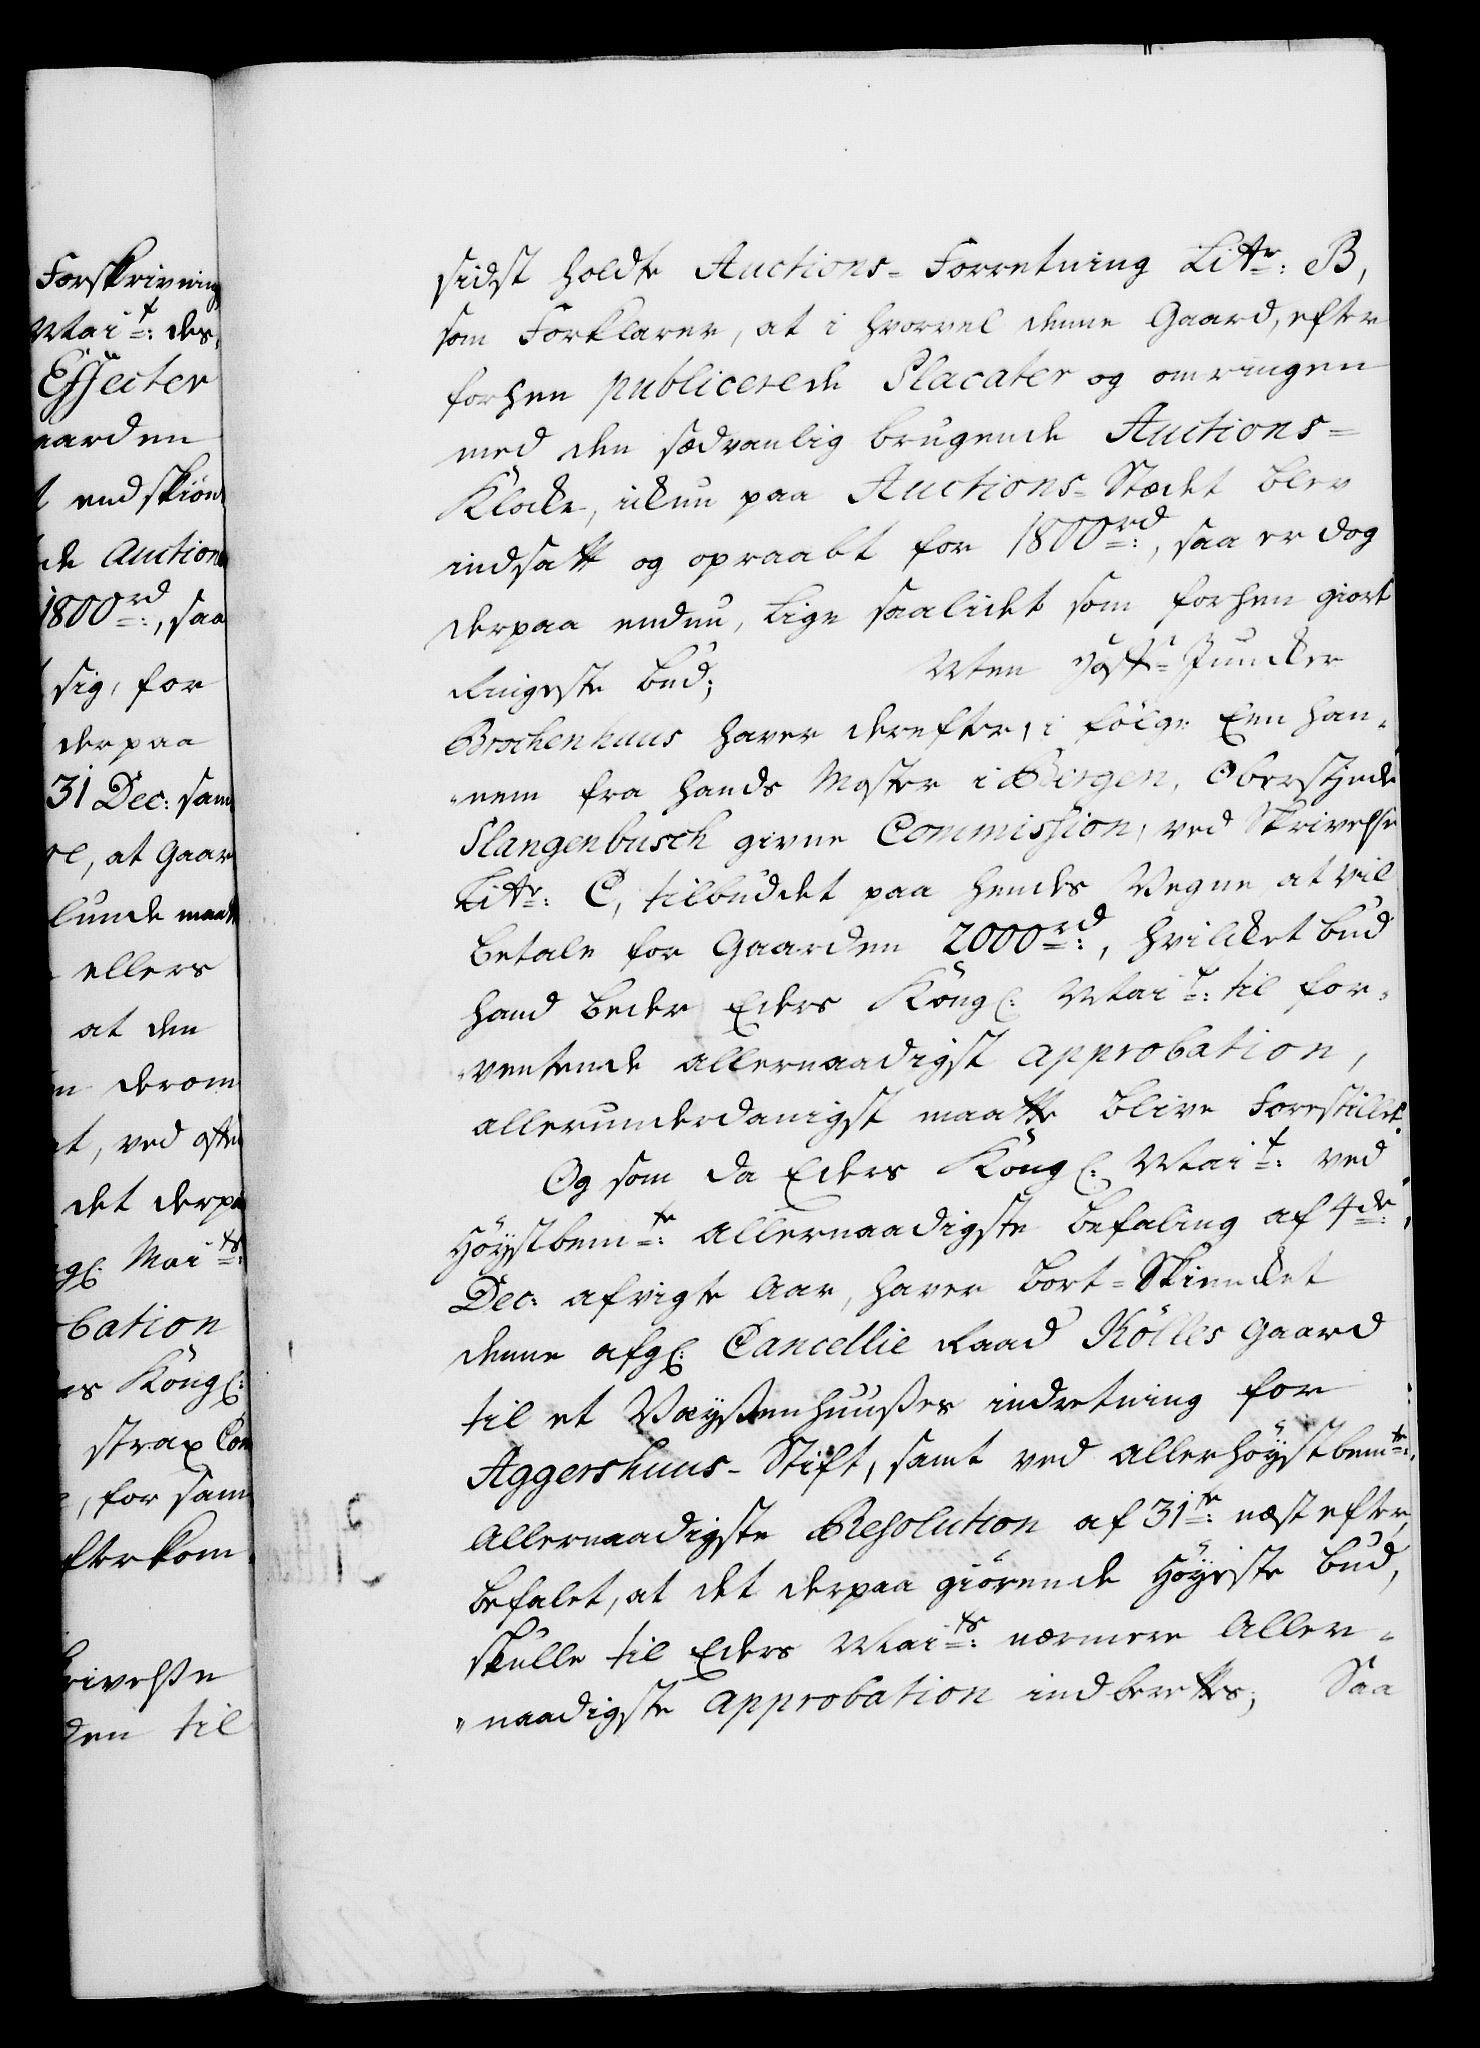 Forskrivning
Mai.t: des,
Effecter
aarden
t endskiön
de Auction
1800rd:, saa
sig, for
derpaa
31 Dec: sam
re, at Gaar
lunde maat
ellers
at den
n derom
t, ved
det derpa
gl. Mai.ts:
bation
es Kongl:
strax Com
, for sam
fterkom
rivelsse
den til
sidst holdte Auctions-Forretning Littr: B,
som Forklarer, at i hvorvel denne Gaard, efter
forhen publicerede Placater og omringen
med den sædvanlig brugende Auctions-
Klocke, ickun paa Auctions-Stædet blev
indsatt og opraabt for 1800rd:, saa er dog
derpaa endnu, lige saalidet som forhen giort
Ringeste bud; Men Hoff-Juncker
Brochenhuus haver derefter, i følge Een han-
nem fra hands Moster i Bergen, Oberstinde
Slangenbusch givne Commission, ved Skrivelse
Littr: C, tilbuddet paa hendes Vegne at vil
betale for Gaarden 2000rd:, hvilcket bud
hand beder Eders Kongl: Mai.t: til for-
ventende allernaadigst approbation,
allerunderdanigst maatte blive Forestillet.
Og som da Eders Kongl: Mai.t: ved
Höystbem.te: allernaadigste befaling af 4de:
Dec: afvigte Aar, haver bort-Skiencket
denne afgl: Cancellie Raad Kölles gaard
til et Vaÿsenhuuses indretning for
Aggershuus-Stift, samt ved allerhöystbem.te:
Allernaadigste Resolution af 31te: næst efter,
befalet, at det derpaa giörende Höyeste bud,
skulle til Eders Mai.ts: nærmere Aller-
naadigste approbation indberettes; Saa